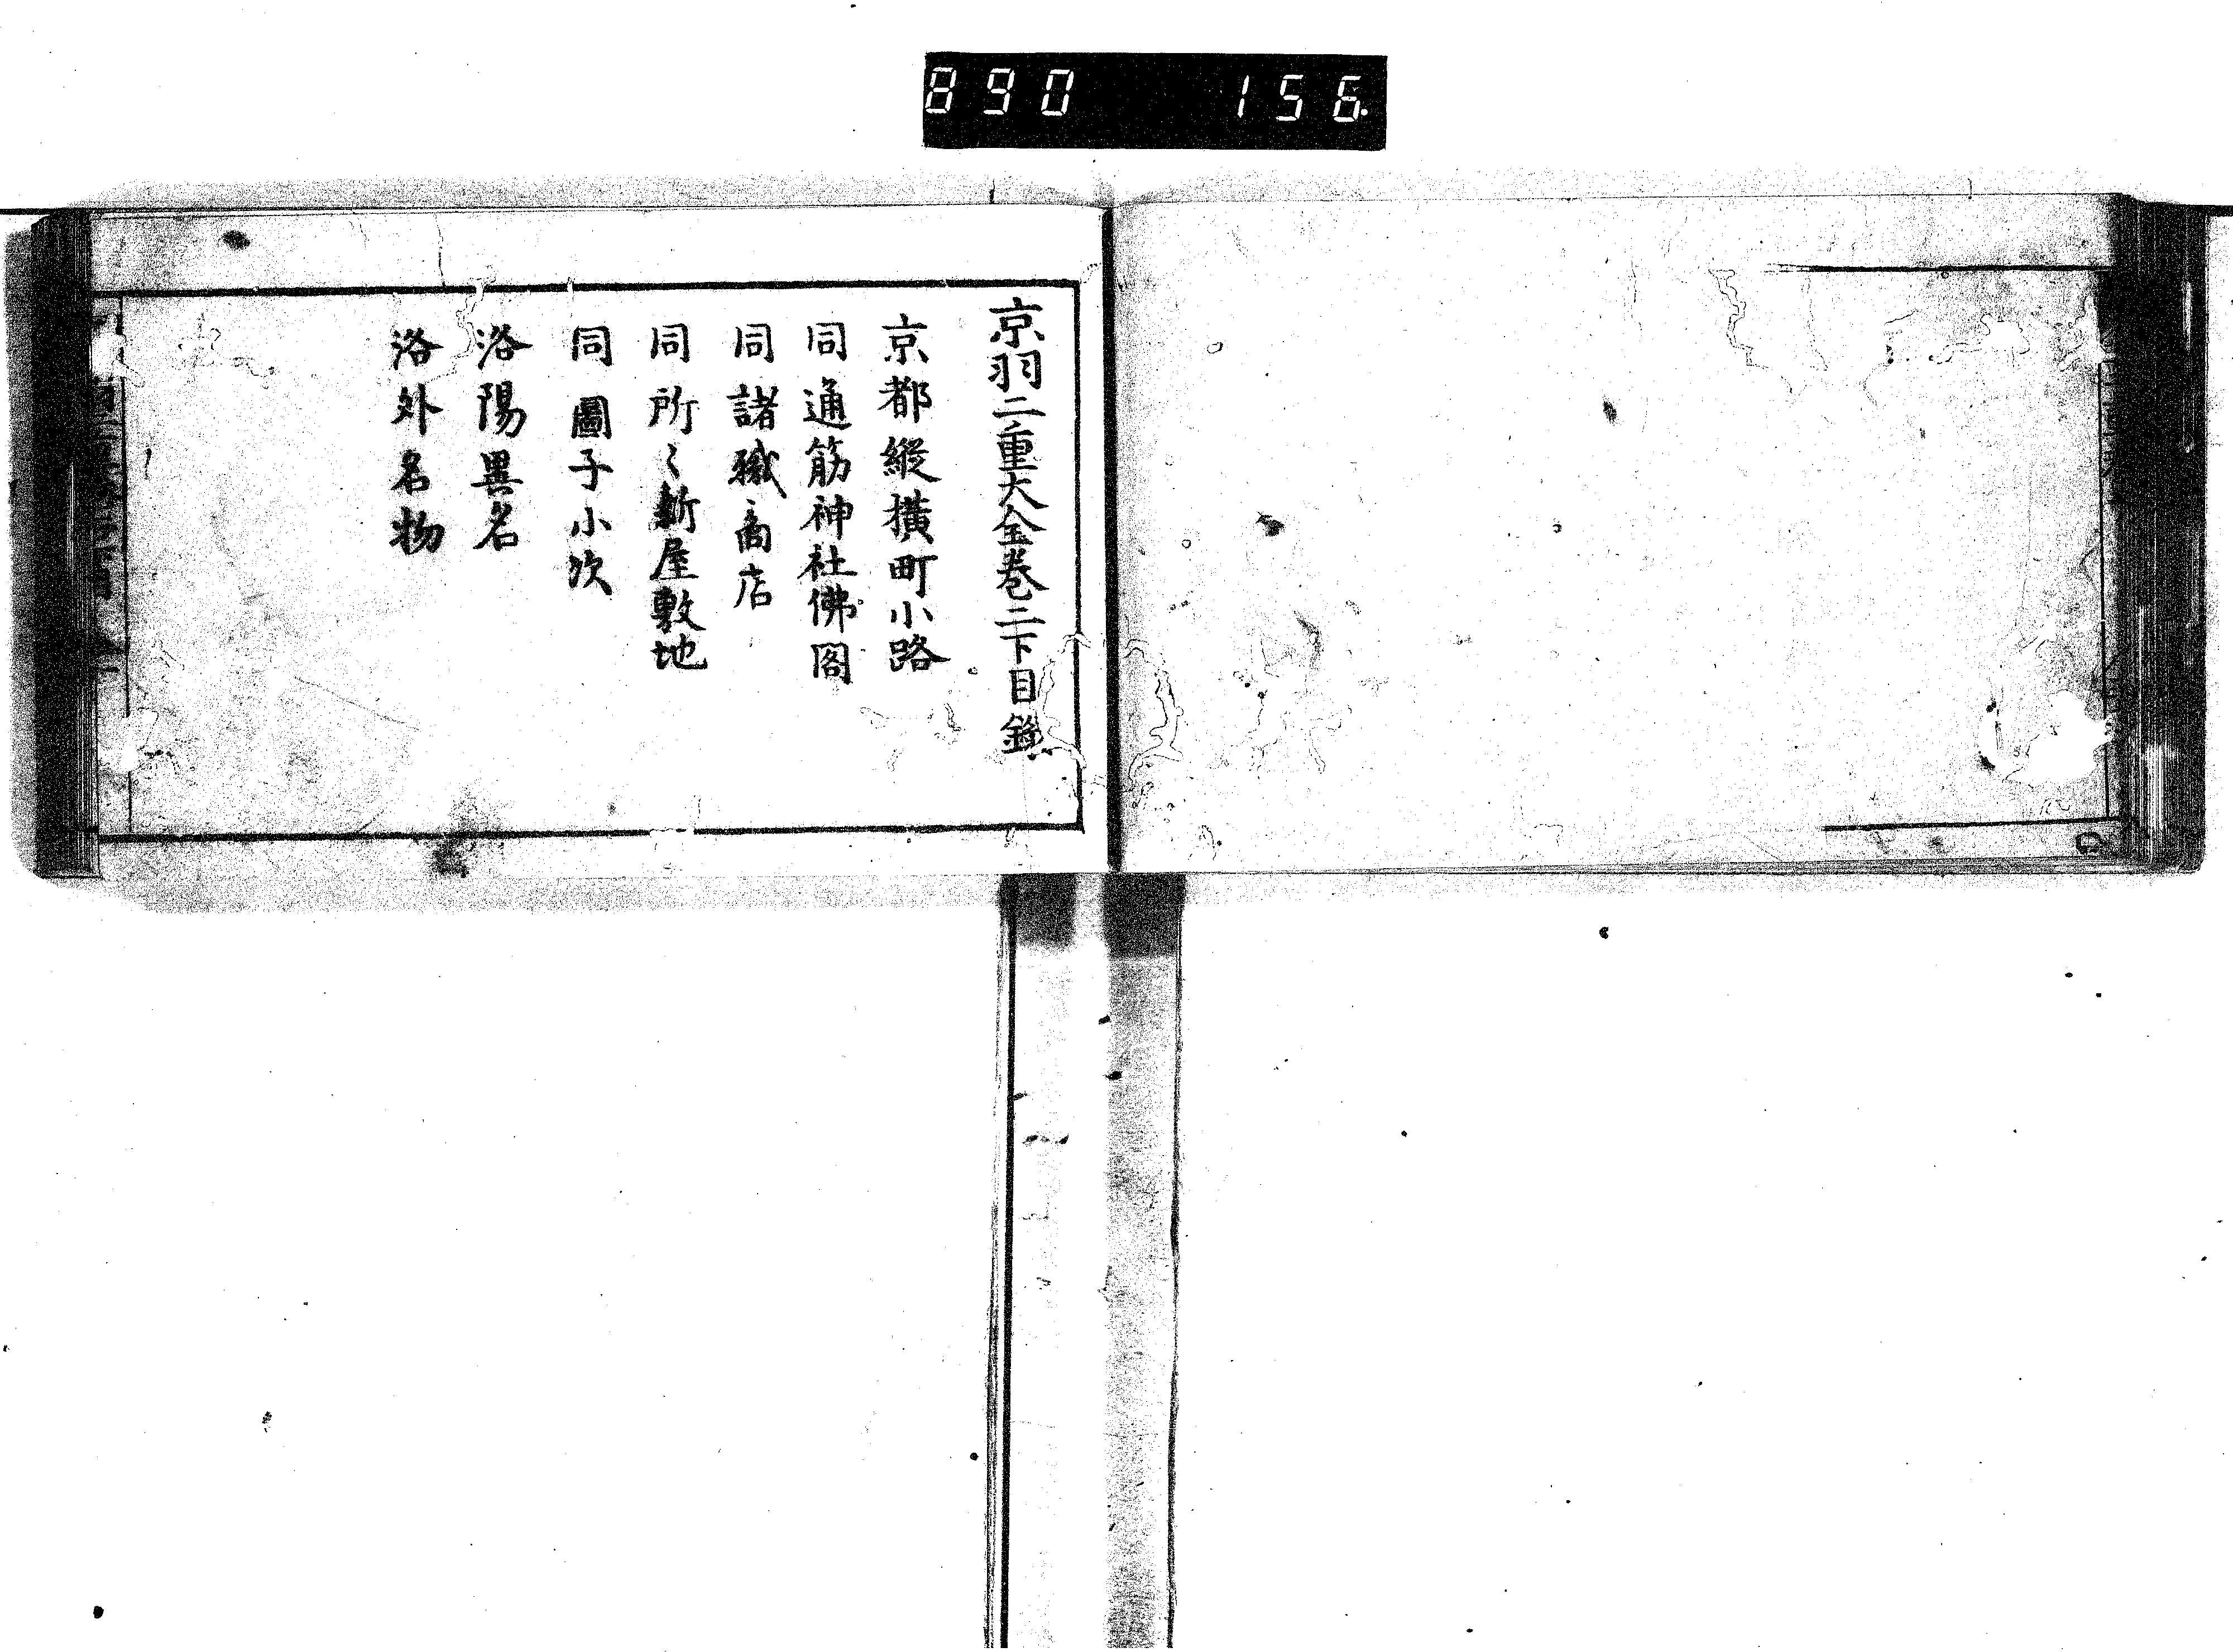 890 156
京羽二重大全巻二下目録
京都縱横町小路
同通筋神社佛閣
同諸職商店
同所〻新屋敷地
同圖子小次
洛陽異名
洛外名物